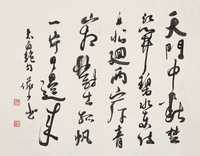 天門中斷楚
江開碧水東流
至此迴兩岸青
山相對出孤帆
一片日邊來